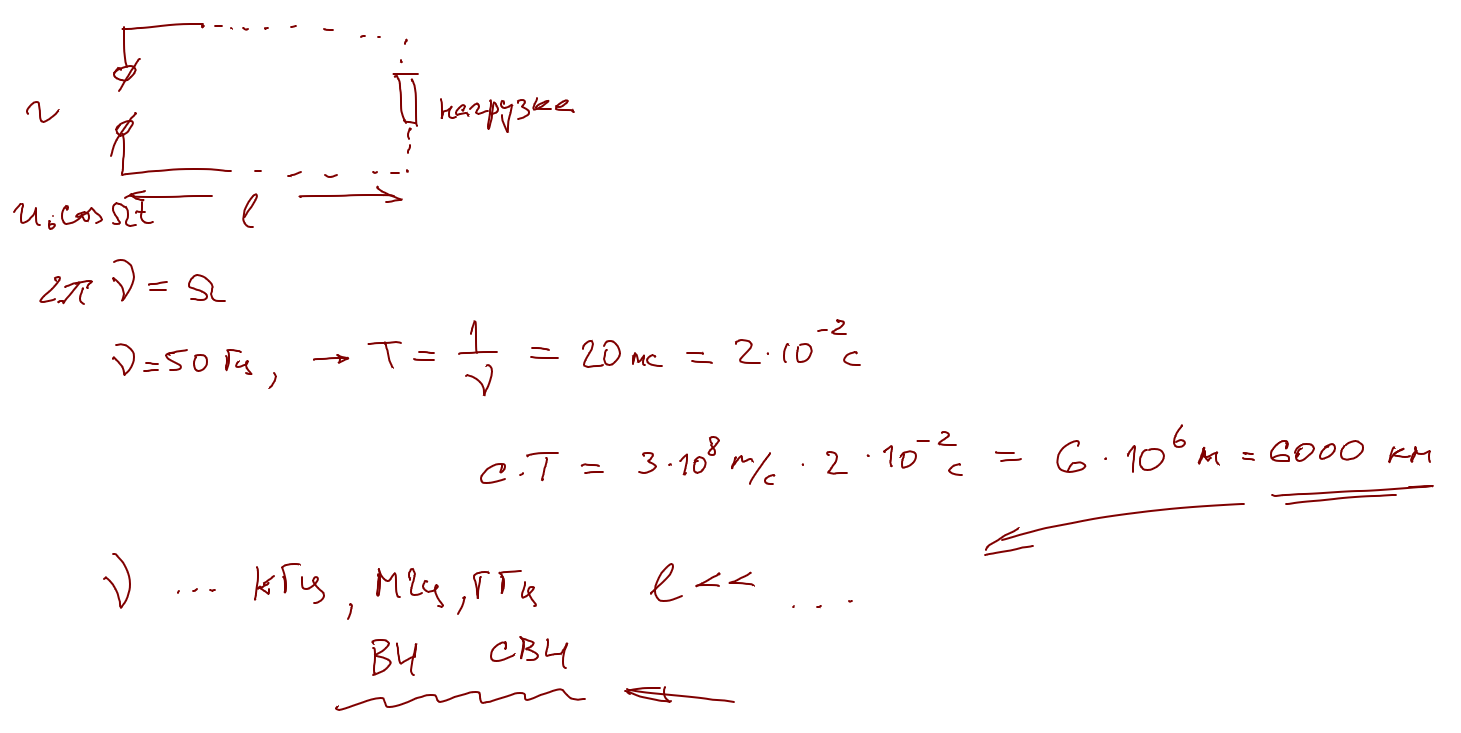 ~
нагрузка
u₀cosΩt
l
2π ν = Ω
ν = 50 Гц, → T = 1/ν = 20 мс = 2·10⁻² с
c·T = 3·10⁸ м/с · 2·10⁻² с = 6·10⁶ м = 6000 км
ν ... кГц, МГц, ГГц l << ...
ВЧ СВЧ